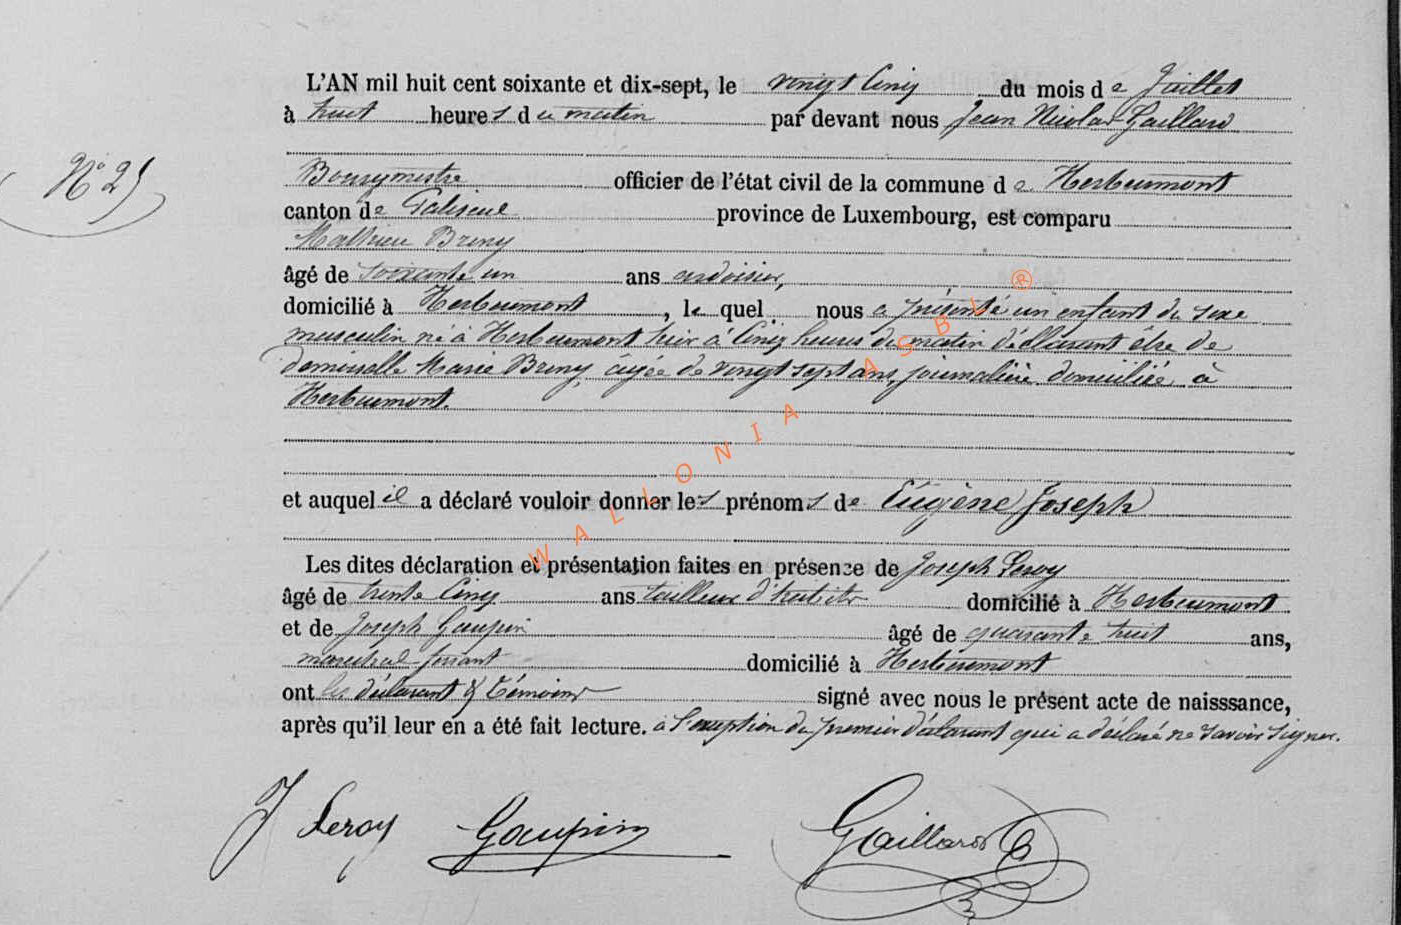 L'AN mil huit cent soixante et dix-sept, le vingt cinq du mois de Juillet
à huit heures du matin par devant nous Jean Nicolas Gaillard
N° 25
Bourgmestre officier de l'état civil de la commune de Herbeumont
canton de Paliseul province de Luxembourg, est comparu
Mathieu Briny
âgé de soixante un ans ardoisier,
domicilié à Herbeumont, lequel nous a présenté un enfant du sexe
musculin né à Herbeumont hier à cinq heures du matin déclarant être de
demoiselle Marie Briny, âgée de vingt sept ans, journalière domiciliée à
Herbeumont.
et auquel il a déclaré vouloir donner les prénoms de Eugène Joseph
Les dites déclaration et présentation faites en présence de Joseph Leroy
âgé de trente cinq ans tailleur d'habits domicilié à Herbeumont
et de Joseph Goupin âgé de quarante huit ans,
maréchal ferrant domicilié à Herbeumont
ont les déclarant & témoins signé avec nous le présent acte de naisssance,
après qu'il leur en a été fait lecture. à l'exception du premier déclarant qui a déclaré ne savoir signer.
J Leroy Goupin Gaillard
WALLONIA ASBL ®